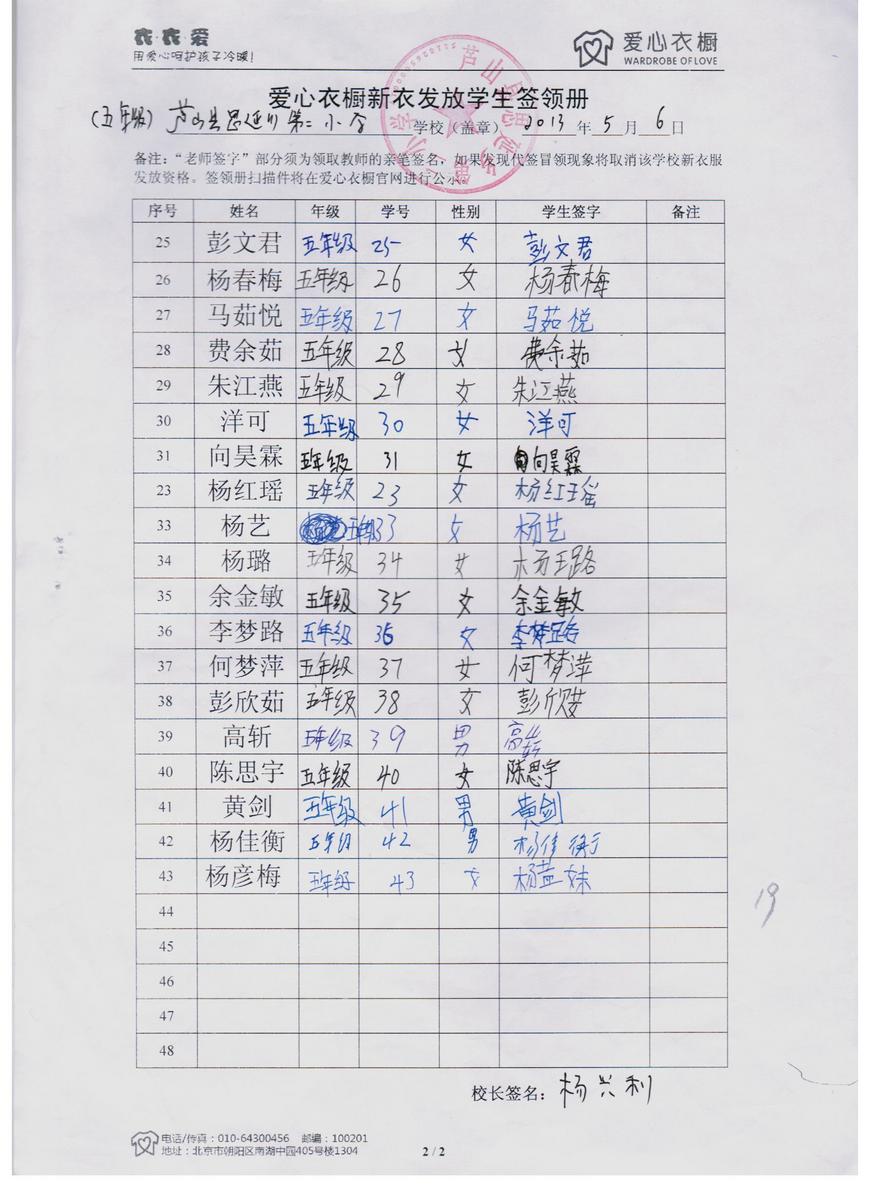 衣·衣·爱
用爱心呵护孩子冷暖!
爱心衣橱
WARDROBE OF LOVE
爱心衣橱新衣发放学生签领册
(五年级) 芦山县思延乡第二小学 学校(盖章) 2013 年 5 月 6 日
备注:“老师签字”部分须为领取教师的亲笔签名,如果发现代签冒领现象将取消该学校新衣服
发放资格。签领册扫描件将在爱心衣橱官网进行公示。
序号 姓名 年级 学号 性别 学生签字 备注
25 彭文君 五年级 25 女 彭文君
26 杨春梅 五年级 26 女 杨春梅
27 马茹悦 五年级 27 女 马茹悦
28 费余茹 五年级 28 女 费余茹
29 朱江燕 五年级 29 女 朱江燕
30 洋可 五年级 30 女 洋可
31 向昊霖 五年级 31 女 向昊霖
23 杨红瑶 五年级 23 女 杨红瑶
33 杨艺 五年级 33 女 杨艺
34 杨璐 五年级 34 女 杨璐
35 余金敏 五年级 35 女 余金敏
36 李梦路 五年级 36 女 李梦路
37 何梦萍 五年级 37 女 何梦萍
38 彭欣茹 五年级 38 女 彭欣茹
39 高斩 五年级 39 男 高
40 陈思宇 五年级 40 女 陈思宇
41 黄剑 五年级 41 男 黄剑
42 杨佳衡 五年级 42 男 杨佳衡
43 杨彦梅 五年级 43 女 杨
44
45
46
47
48
19
校长签名: 杨兴利
电话/传真:010-64300456 邮编:100201
地址:北京市朝阳区南湖中园405号楼1304
2 / 2